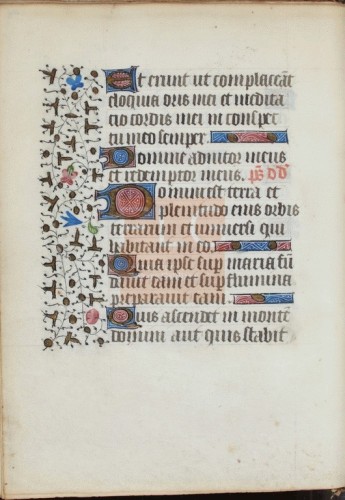 Et erunt ut complaceāt
eloquia oris mei et medita
tio cordis mei in conspec
tu meo semper.
Domine adiutor meus
et redemptor meus. ps̄ dd̄
Domini est terra et
plenitudo eius orbis
terrarum et universi qui
habitant in eo.
Quia ipse sup maria fū
davit eam et sup flumina
preparavit eam.
Quis ascendet in montē
domini aut quis stabit